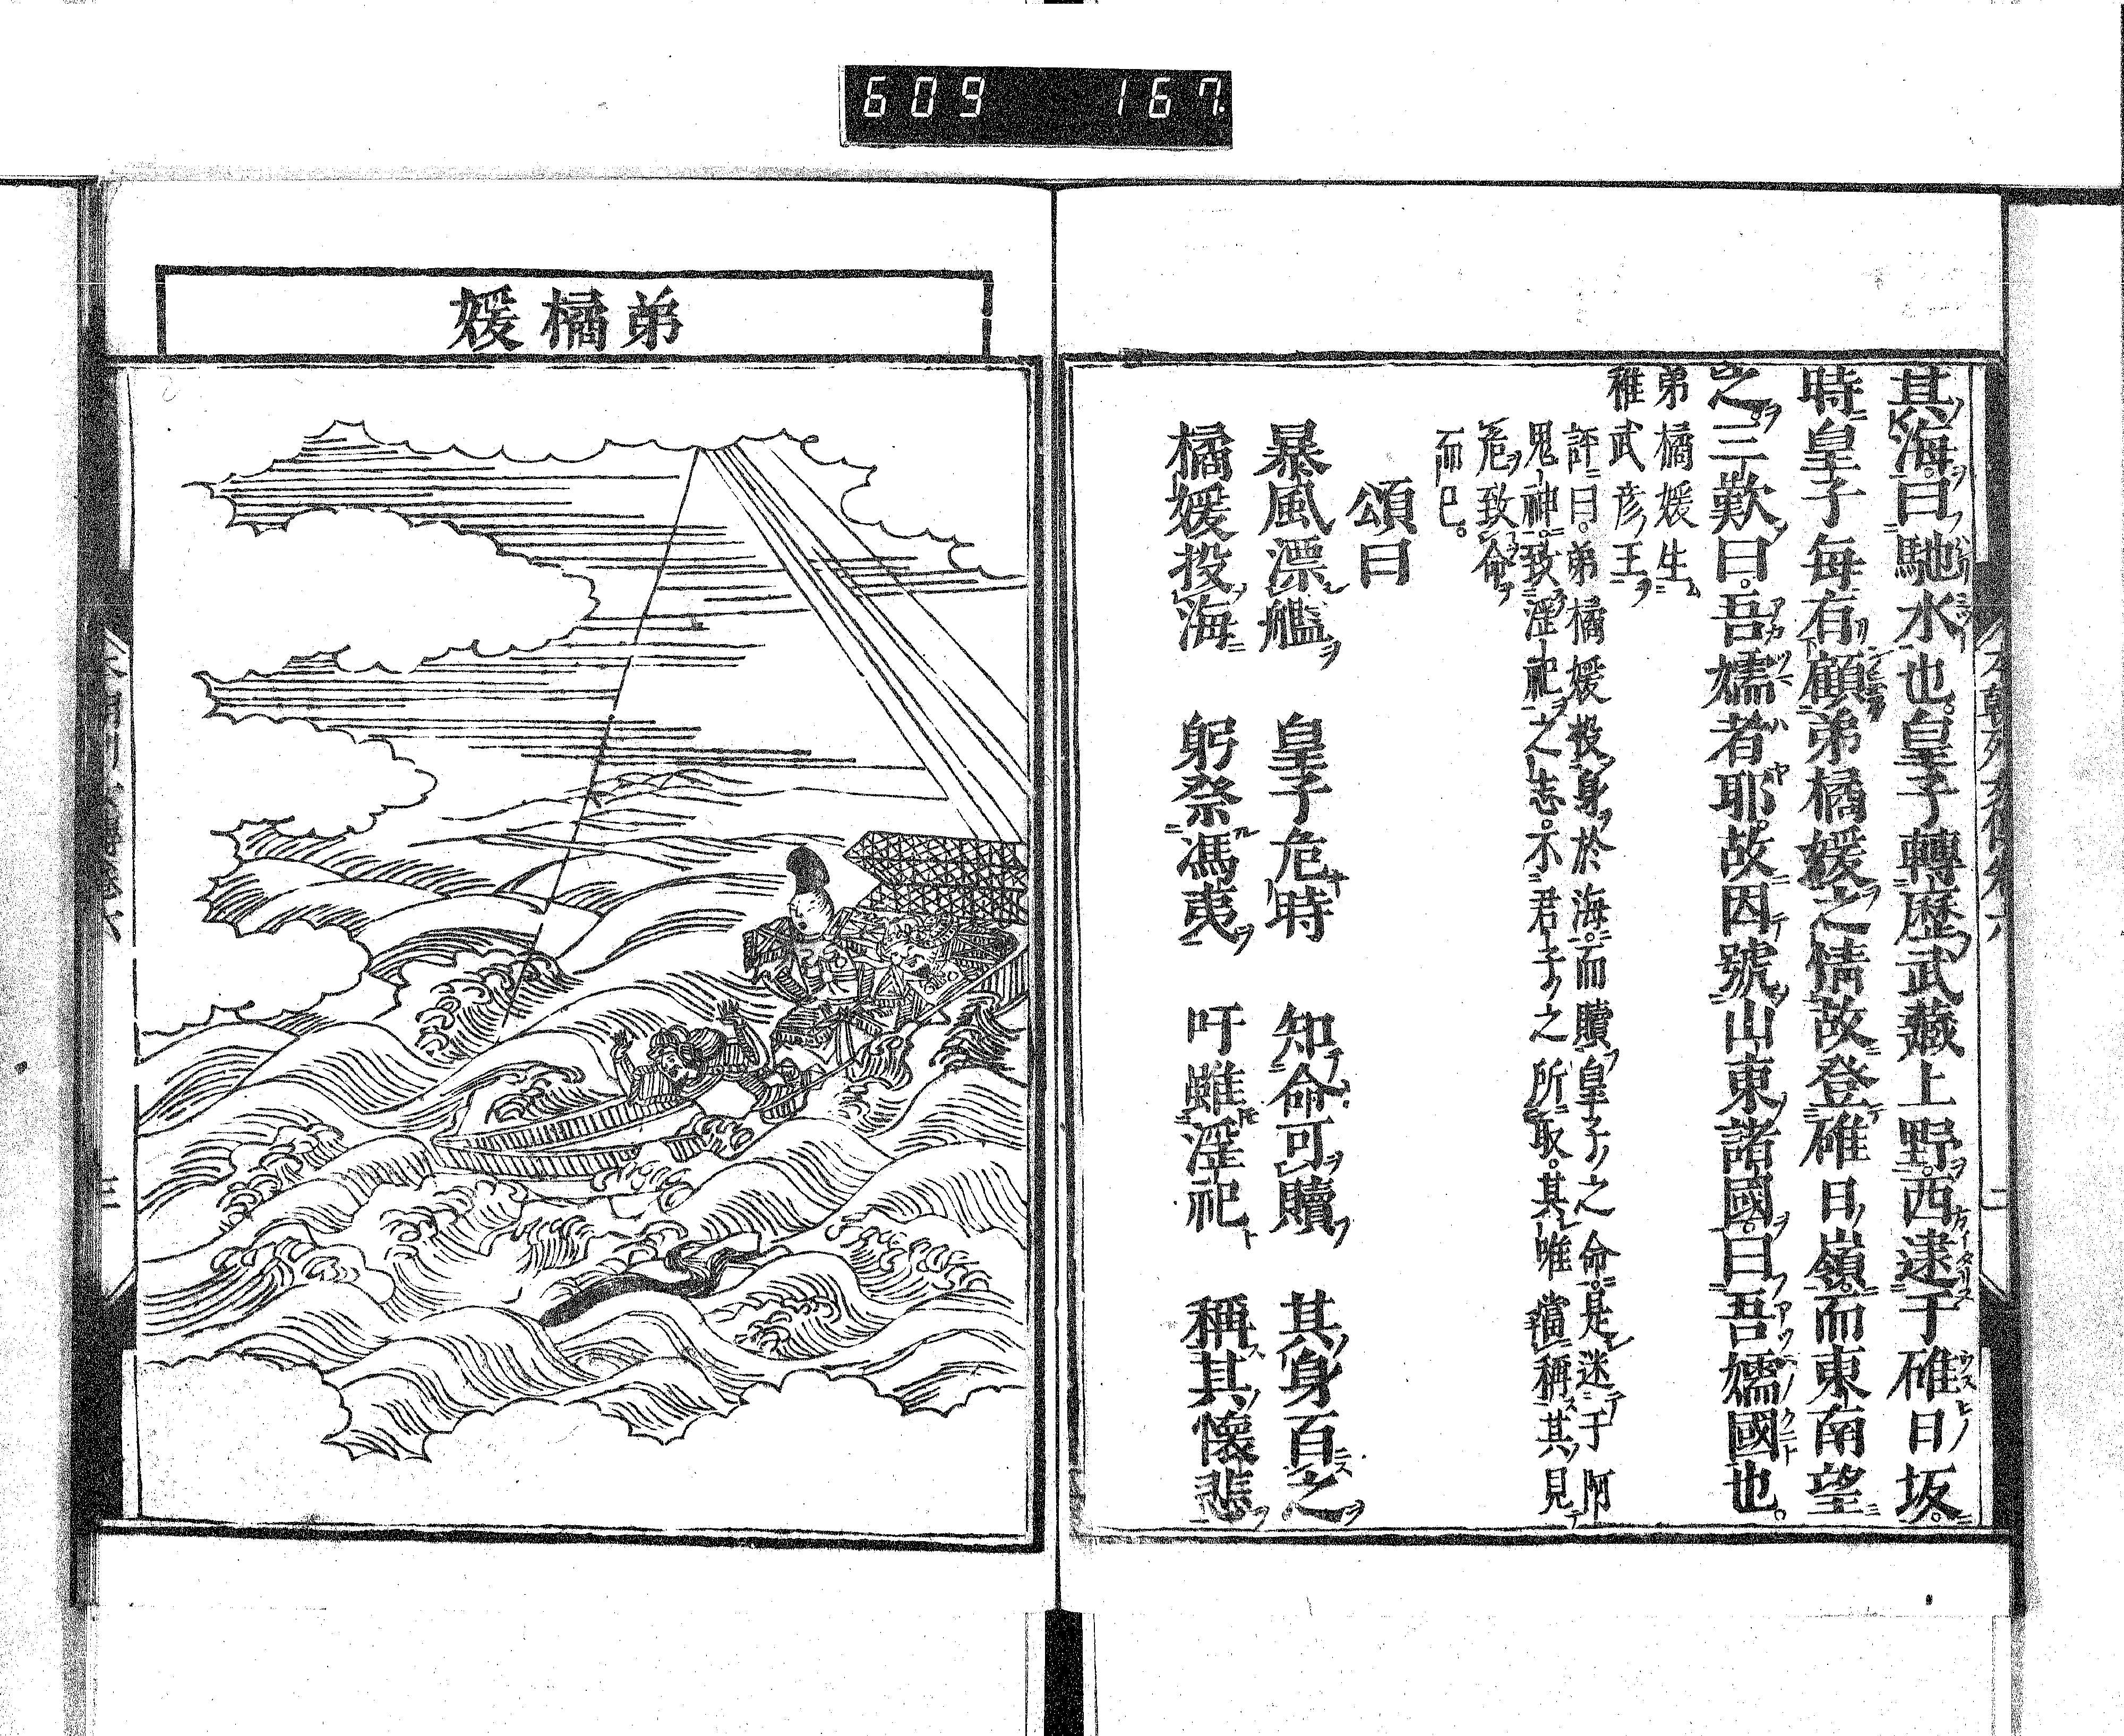 609 167
其海曰馳水也。皇子轉歷武藏上野。西逮于碓日坂。
時皇子每有顧弟橘媛之情故登碓日嶺。而東南望
之。三歎曰。吾嬬者耶。故因號山東諸國。曰吾嬬國也。
弟橘媛生
稚武彦王
評曰。弟橘媛投身於海。而贖皇子之命。是迷于
鬼神。致淫祀之志。不君子之所取。其唯當稱其見
危致命
而已。
頌曰
暴風漂艦 皇子危時 知命可贖 其身百之
橘媛投海 躬祭馮夷 吁雖淫祀 稱其懷悲
弟橘媛